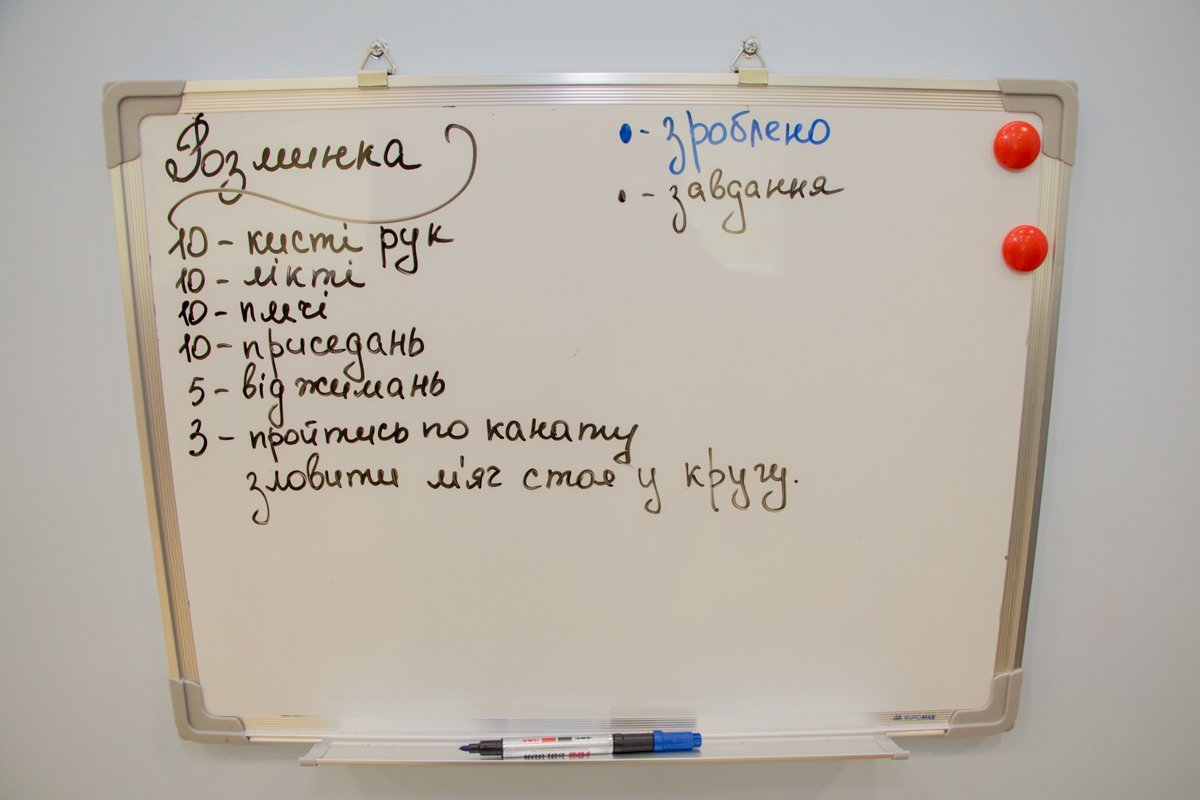 Розминка
10 - кисті рук
10 - лікті
10 - плечі
10 - приседань
5 - віджимань
3 - пройтись по канату
зловити м'яч стоя у кругу.
• - зроблено
• - завдання
BUROMAX